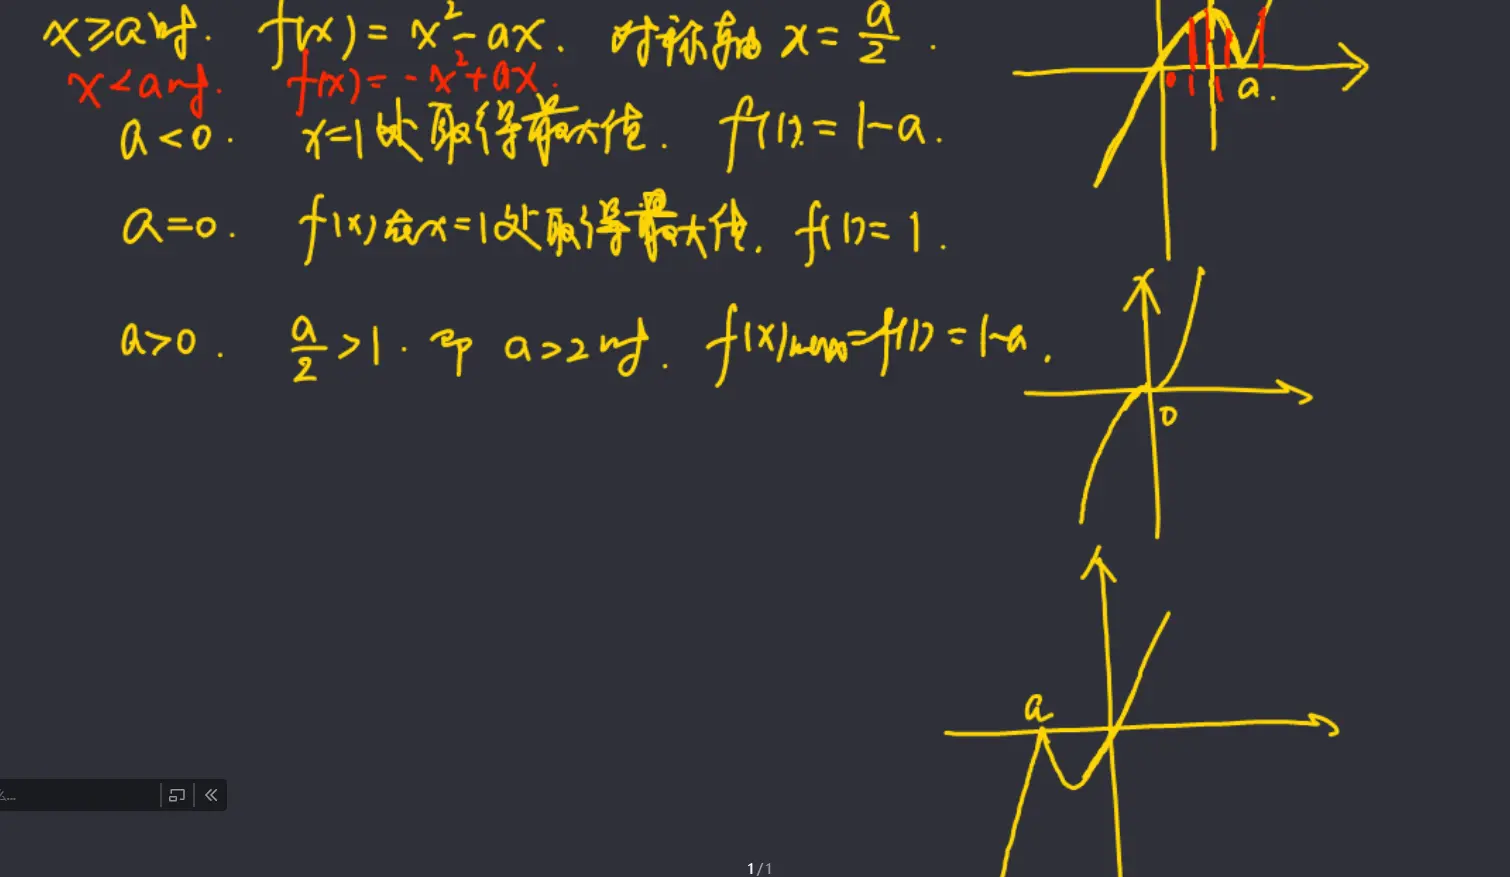 x≥a时. f(x)=x²-ax. 对称轴 x=a/2.
x<a时. f(x)=-x²+ax.
a<0. x=1处取得最大值. f(1)=1-a.
a=0. f(x)在x=1处取得最大值. f(1)=1.
a>0. a/2>1. 即 a>2时. f(x)max=f(1)=1-a.
0 1 1 a.
0
a
...
1/1